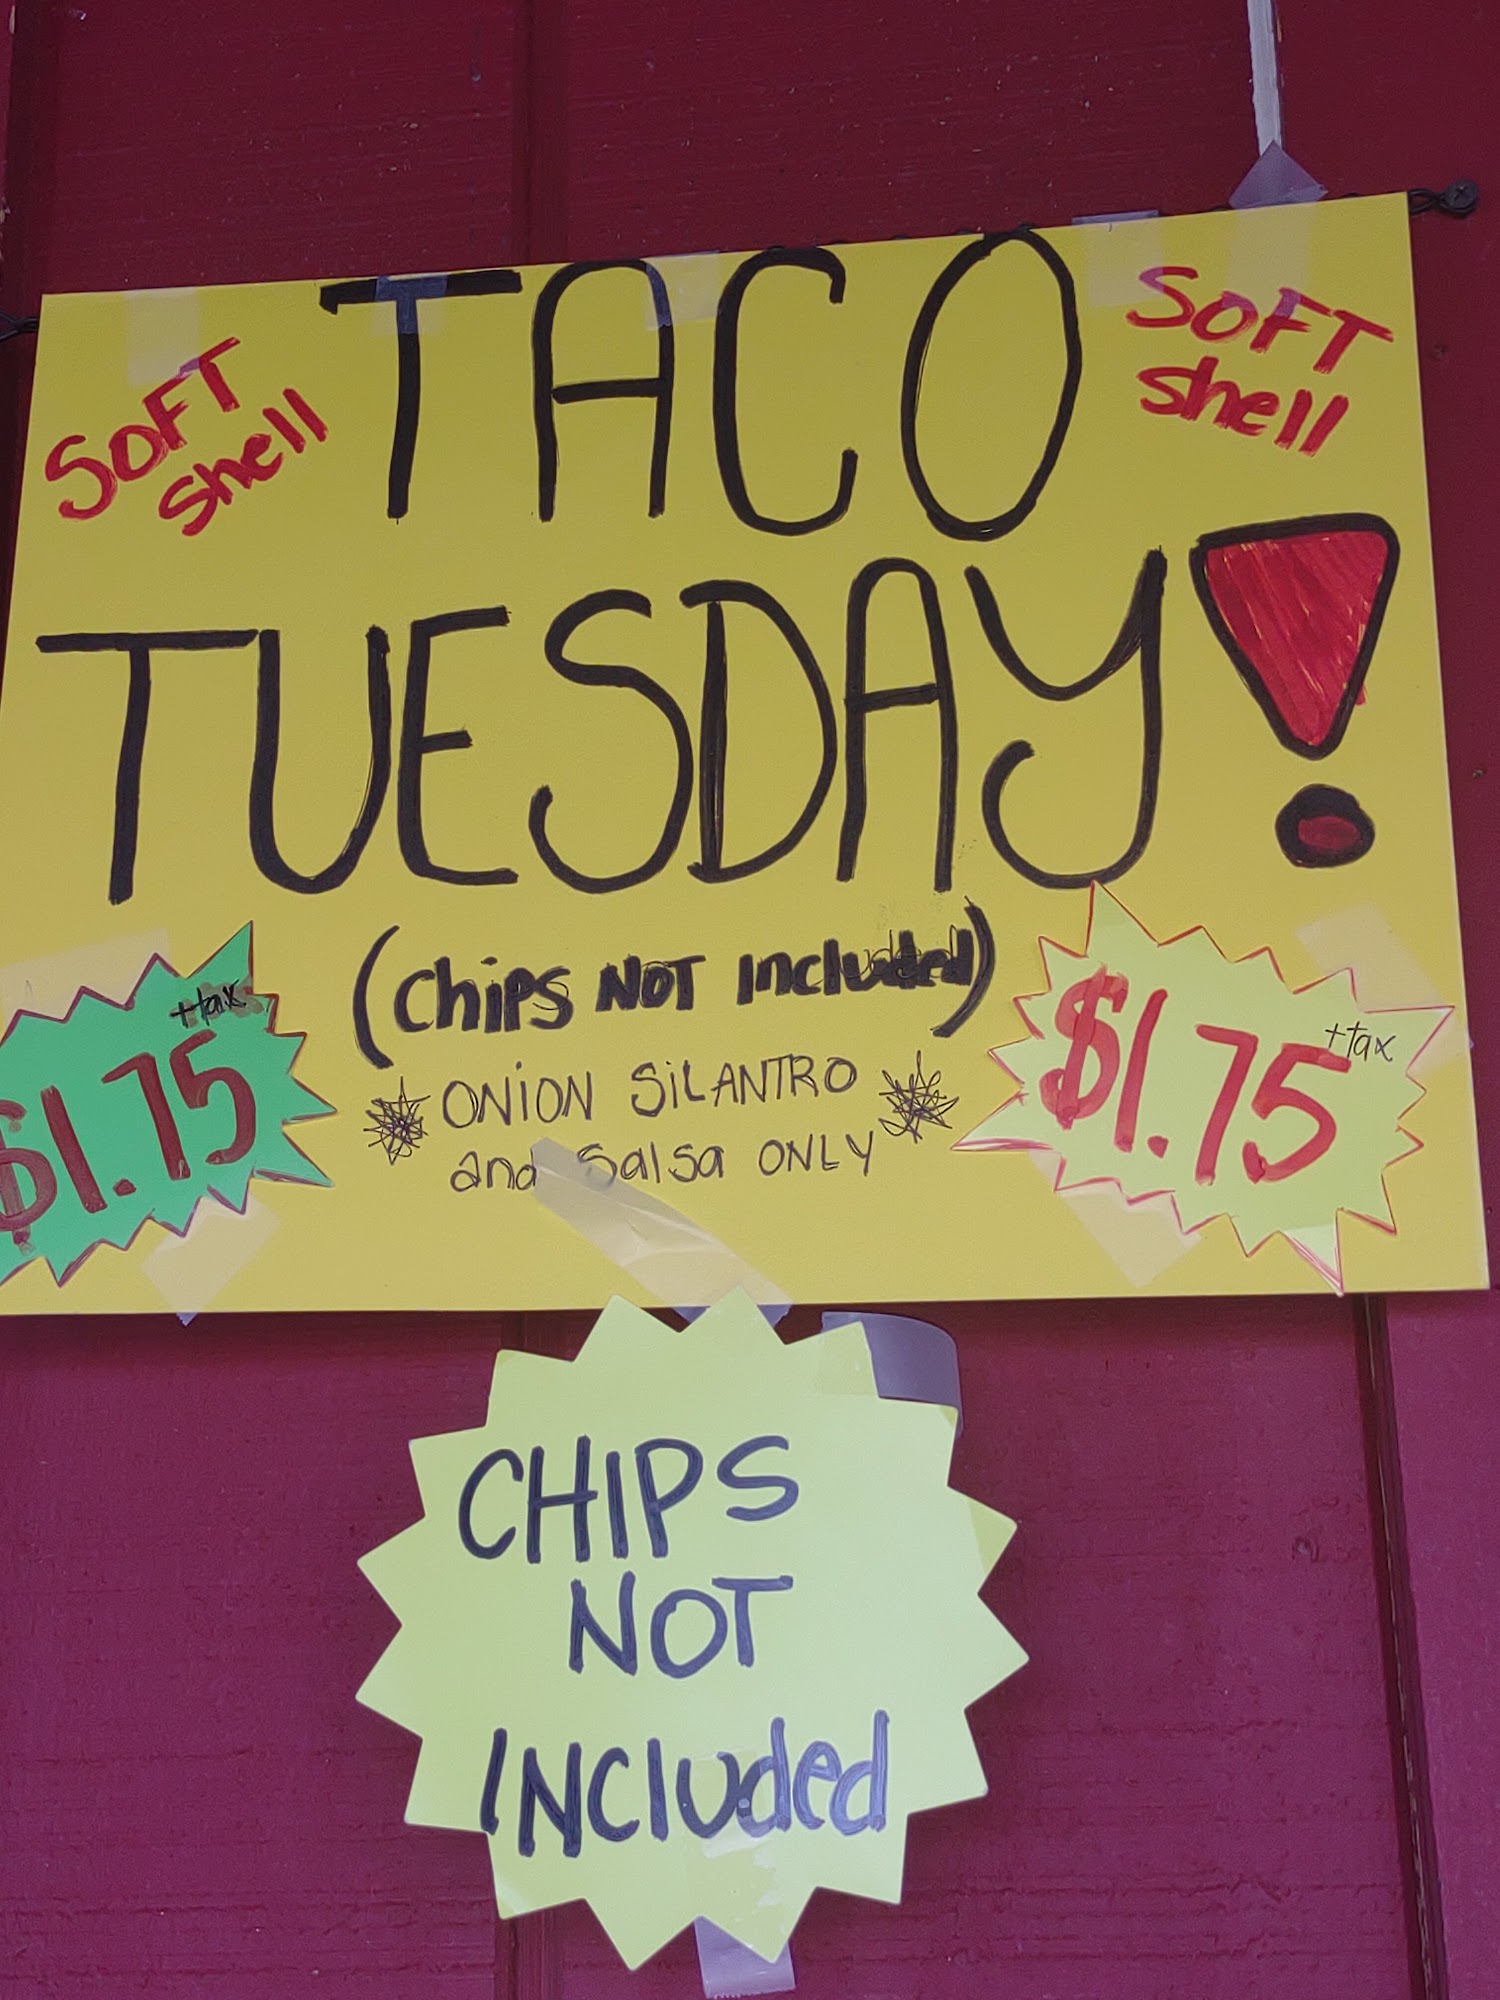 TACO
SOFT
shell
SOFT
shell
TUESDAY!
(Chips NOT Included)
+tax
$1.75
ONION SILANTRO
and Salsa ONLY
+tax
$1.75
CHIPS
NOT
INCluded